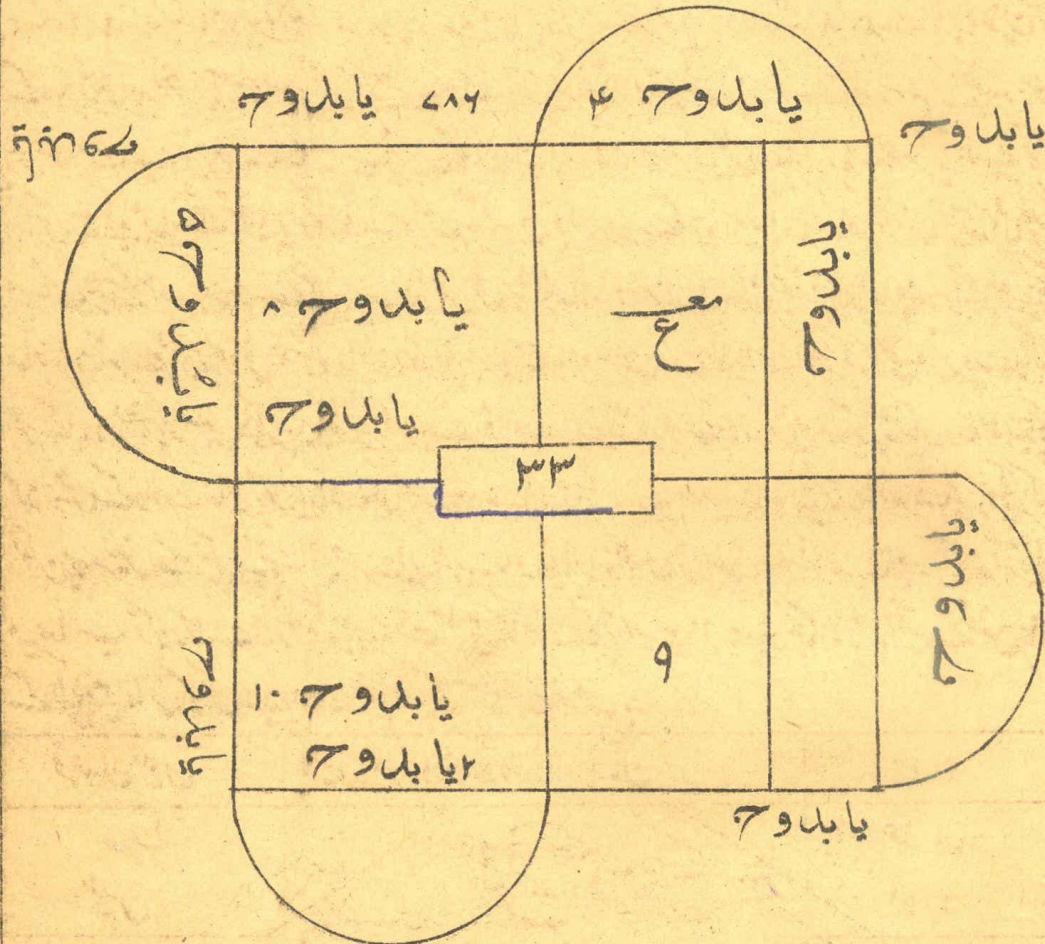 یا بدوح ۷۸۶
یا بدوح ۴
یا بدوح
یا بدوح
یا بدوح ۵
یا بدوح ۸
یا بدوح
یا بدوح
۳۳
یا بدوح
۹
یا بدوح
یا بدوح ۱۰
۲ یا بدوح
یا بدوح